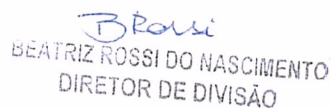 BRossi
BEATRIZ ROSSI DO NASCIMENTO
DIRETOR DE DIVISÃO